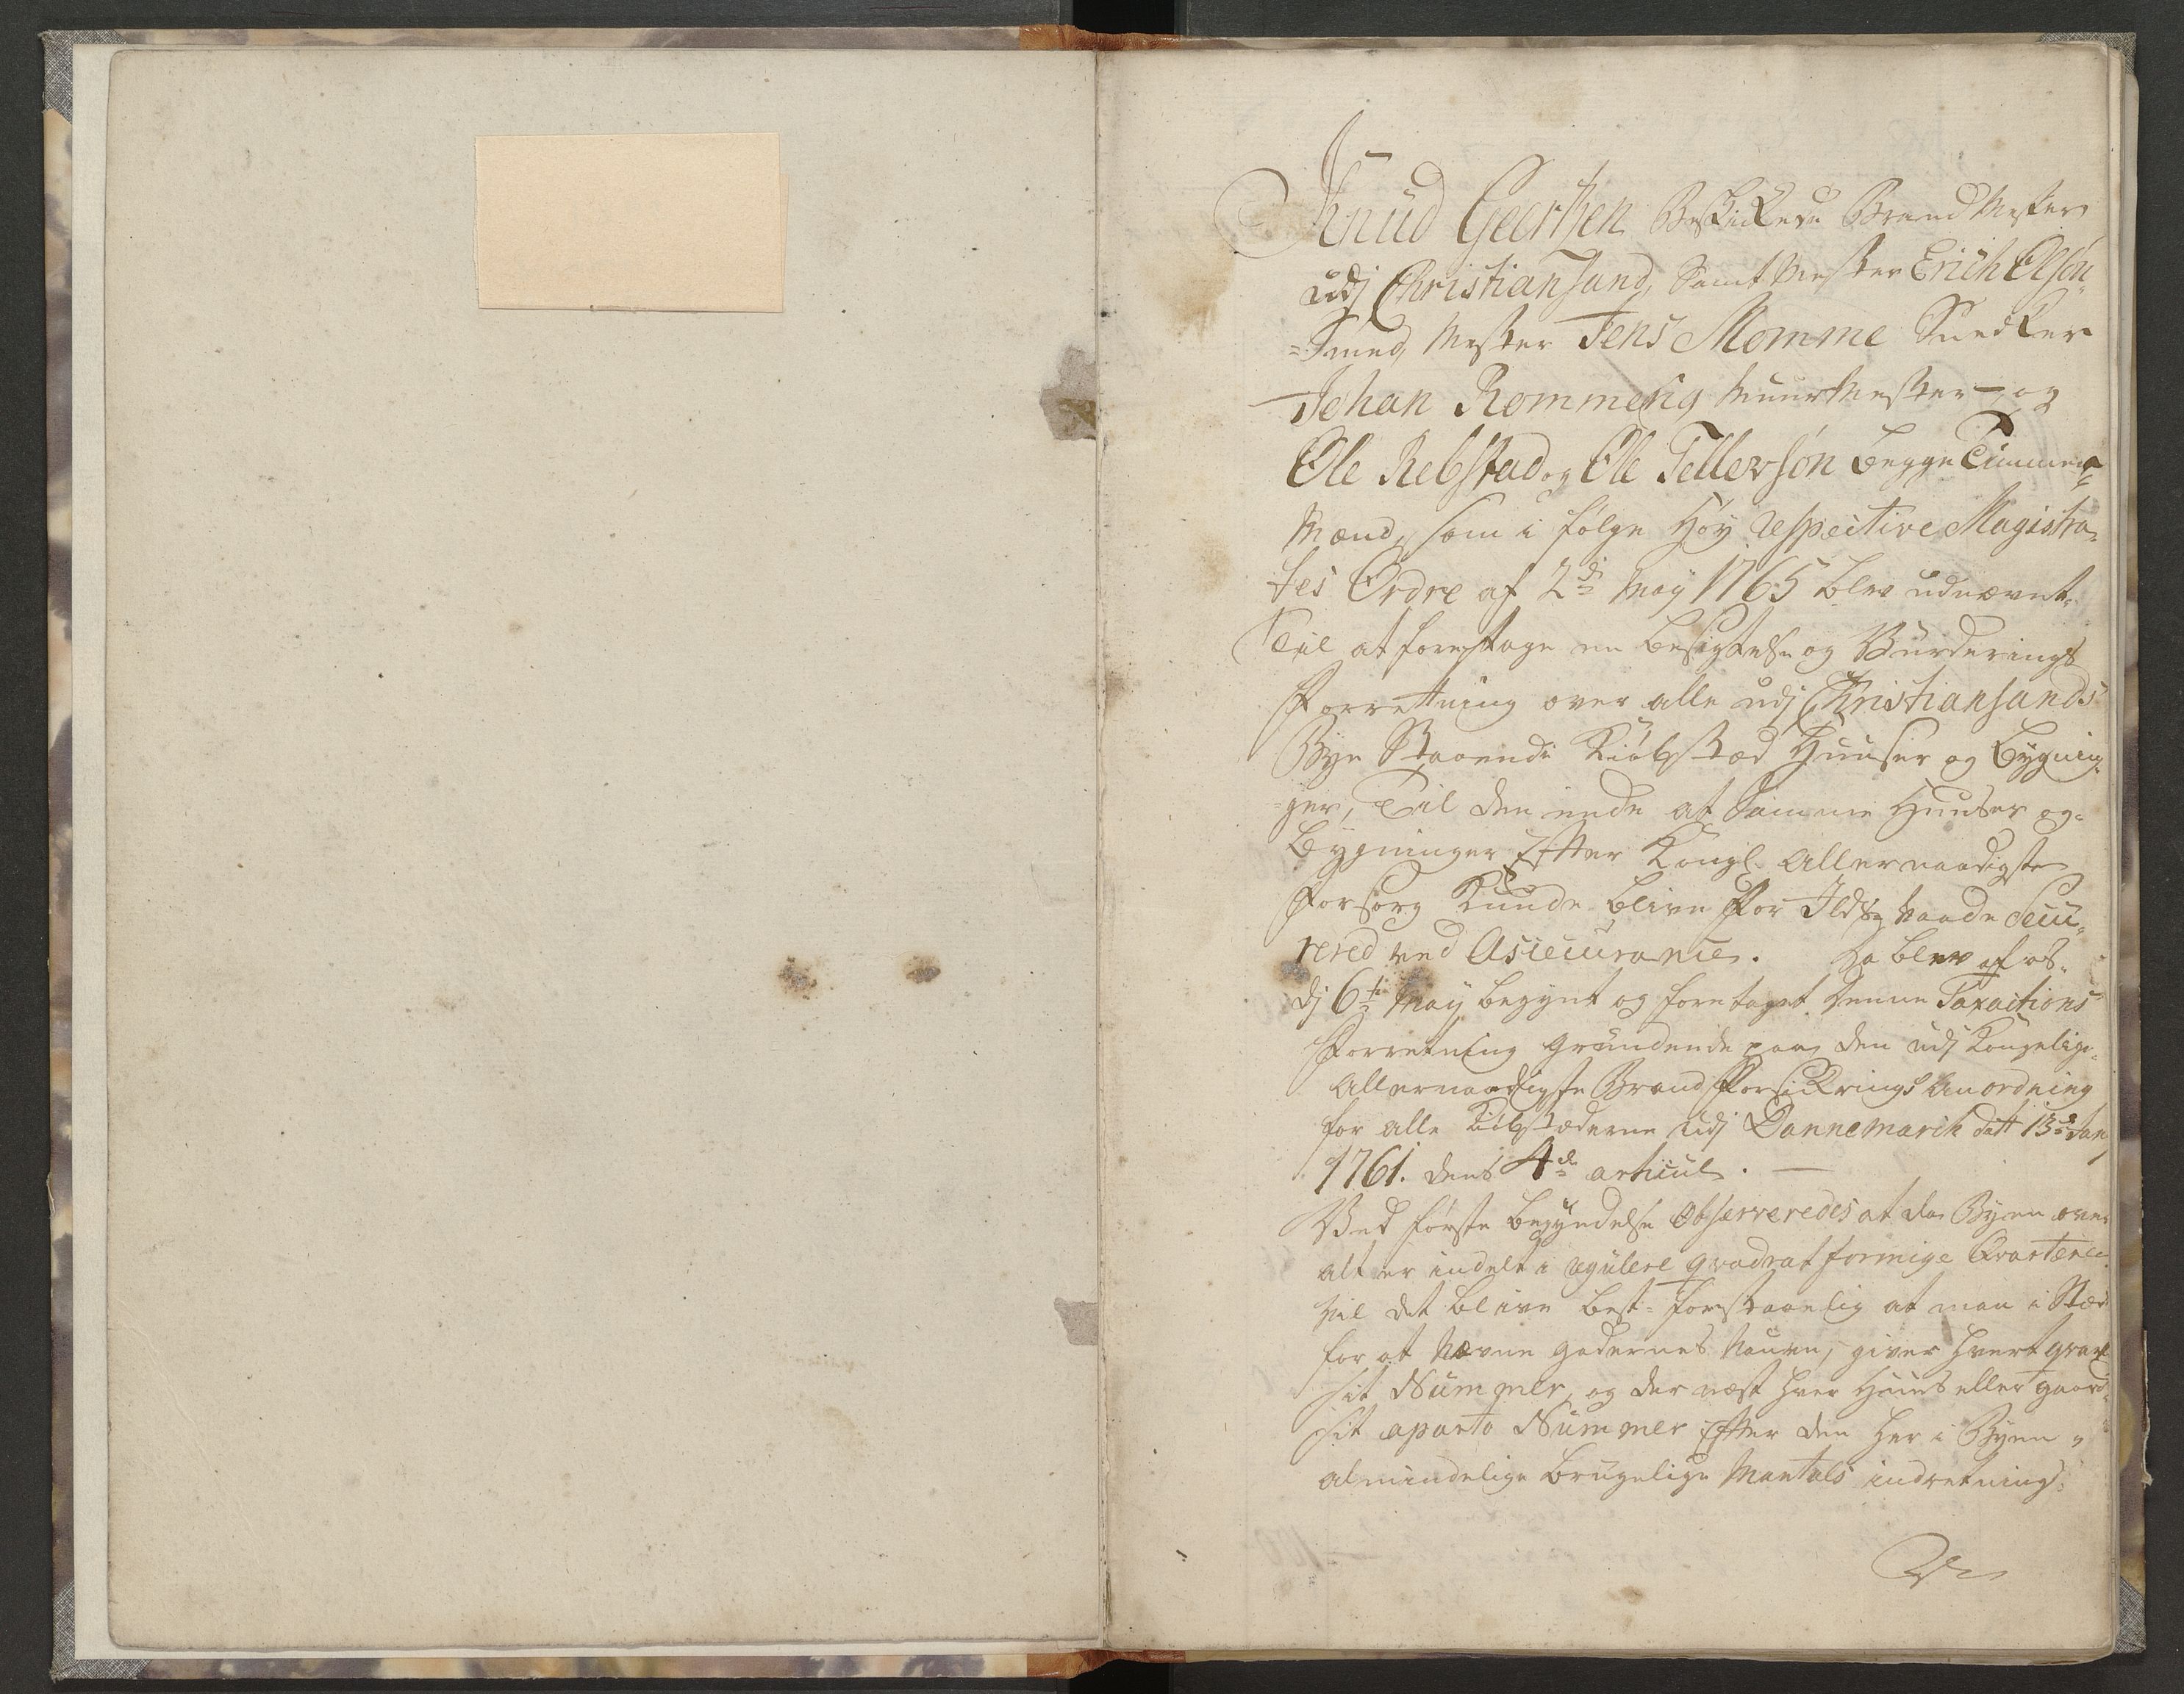 Knud Geertsen Beskickede Brand Mester
udj Christiansand, Samt Mester Erich Olsøn
=Smed, Mester Jens Momme Snedker
Johan Rommelig Muur Mester og
Ole Rebstad og Ole Tellevsøn begge Timmer=
Mænd, som i følge Høy respective Magistra=
tes Ordre af 2de May 1765 blev udnævnt
Til at foretage en besigtelse og Vurderings
Forrettning over alle udj Christiansands
Bye Staaende Kiøbstæd Huuser og bygnin=
=ger, Til den ende at Samme Huuser og=
bygninger Efter Kongl. Allernaadigste
Forsorg Kunde blive for Ilds Vaade Secu=
rered ved Assecurance. Da blev af os=
dj 6te May begynt og foretaget denne Taxactions
Forretning grundende paa den udj Kongelige=
Allernaadigste Brand Forsickrings Anordning
for alle Kiøbstæderne udj Dannemarck datt 13de Jan
1761. dens 4de articul.
Ved første begyndelse Observeredes at da Byen over
alt er indelt i regulere qvadrat formige Qvarterer
vil det blive best forstaaelig at man i Stæd
for at Nævne gadernes Navne, giver hvert qvart
sit Nummer, og der næst hver Huus eller gaard=
sit aparte Nummer Efter den her i Byen
almindelige brugelige Mantals indretning.